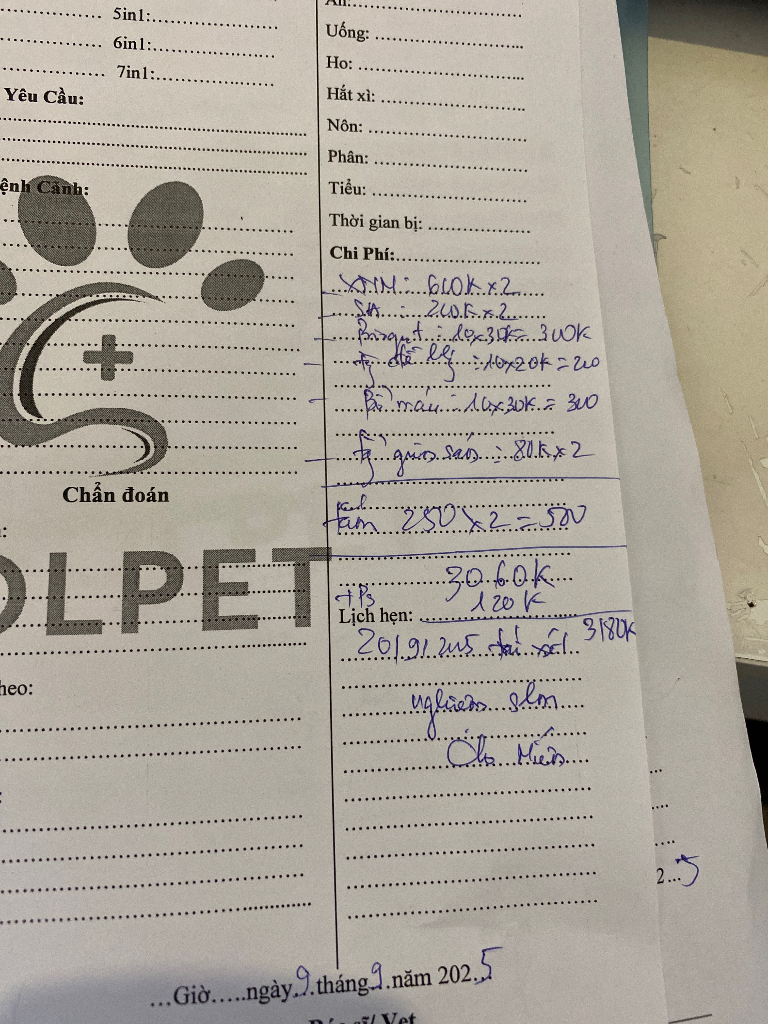 5in1:
6in1:
7in1:
Yêu Cầu:
ệnh Cảnh:
Chẩn đoán
OLPET
heo:
Ăn:
Uống:
Ho:
Hắt xì:
Nôn:
Phân:
Tiểu:
Thời gian bị:
Chi Phí:
XNM: 610K x 2
SA : 210K x 2
: 10x30K= 300K
: 10x20K = 200
Bổ máu : 10x30K = 300
Tẩy giun sán : 80K x 2
250 x 2 = 500
3060K
+ PS 120K
Lịch hẹn:
3180K
20/9/2025 tái xét
nghiệm
...Giờ.....ngày 9 tháng 9 năm 2025
Bác sĩ/ Vet
2...5